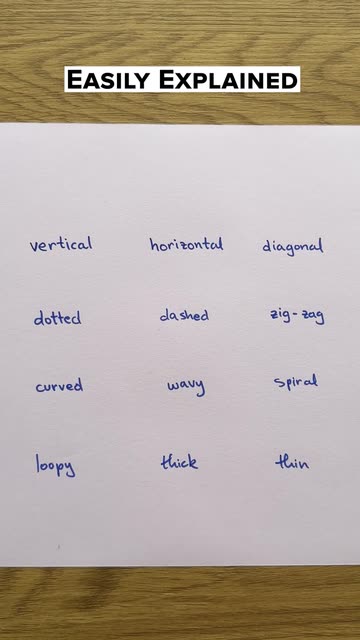 EASILY EXPLAINED
vertical horizontal diagonal
dotted dashed zig-zag
curved wavy spiral
loopy thick thin